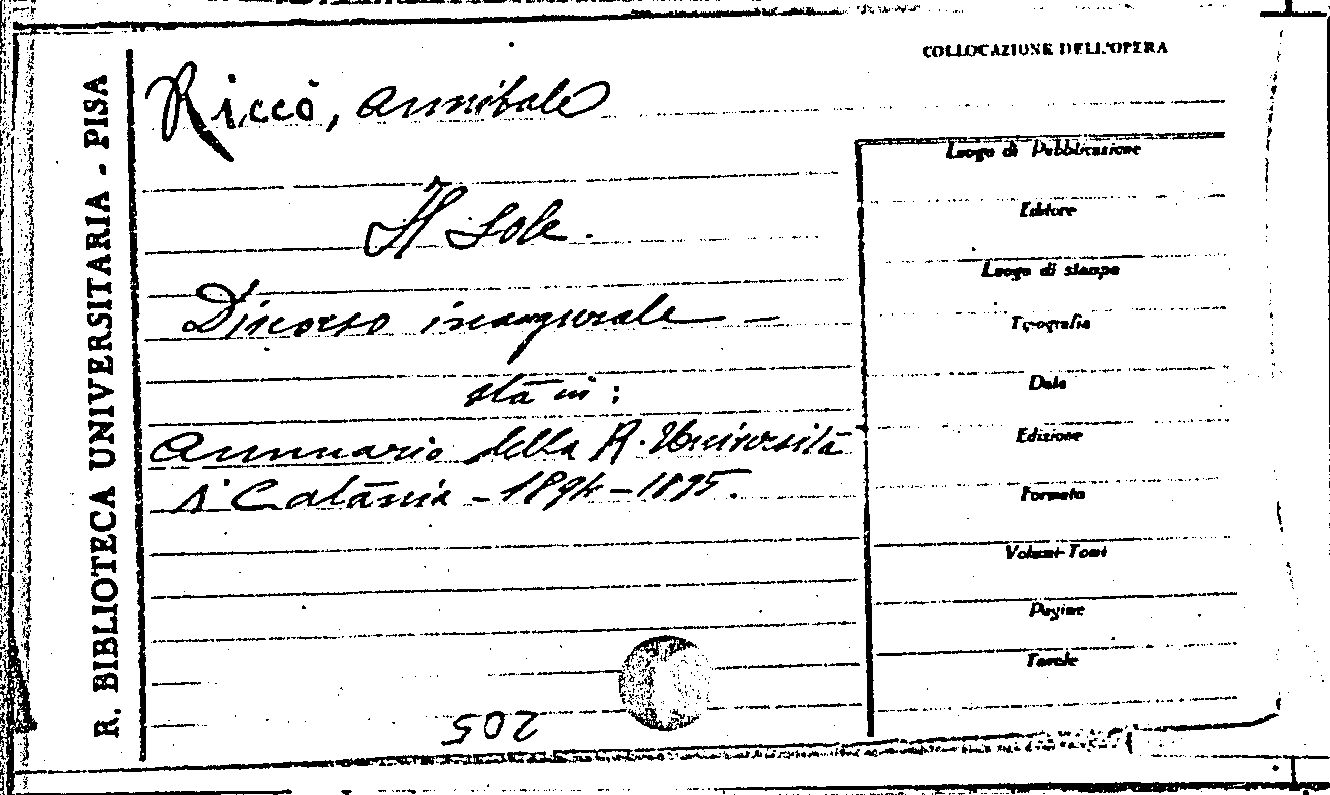 R. BIBLIOTECA UNIVERSITARIA - PISA
COLLOCAZIONE DELL'OPERA
Riccò, Annibale
Il Sole.
Discorso inaugurale —
sta in:
Annuario della R. Università
di Catania - 1894-1895.
Luogo di Pubblicazione
Editore
Luogo di stampa
Tipografia
Data
Edizione
Formato
Volumi-Tomi
Pagine
Tavole
205